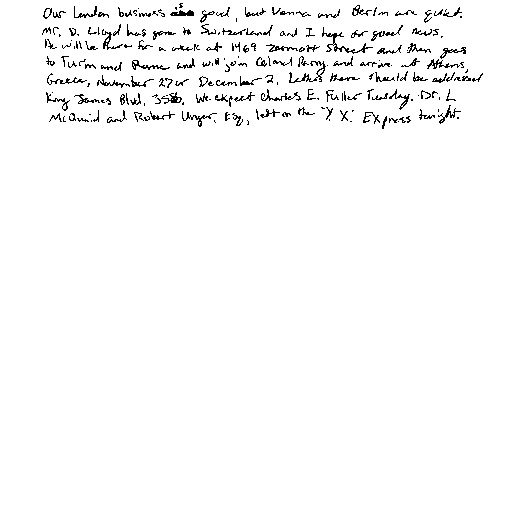 Our London business is good, but Vienna and Berlin are quiet.
Mr. D. Lloyd has gone to Switzerland and I hope for good news.
He will be there for a week at 1469 Zermott Street and then goes
to Turin and Rome and will join Colonel Parry and arrive at Athens,
Greece, November 27 or December 2. Letters there should be addressed
King James Blvd. 3580. We expect Charles E. Fuller Tuesday. Dr. L
McQuaid and Robert Unger, Esq., left on the "Y. X." Express tonight.